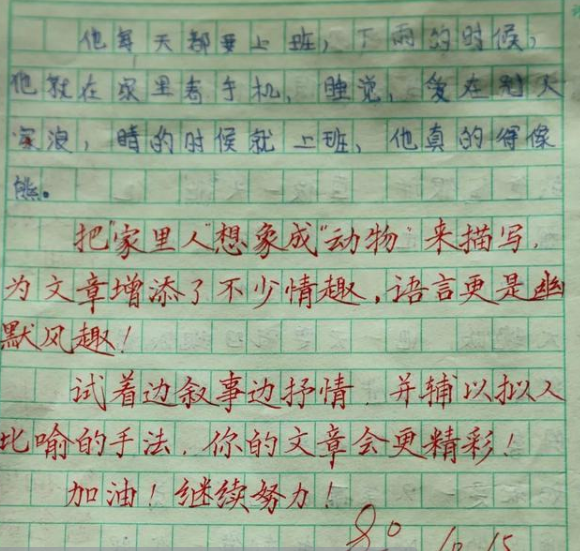 他每天都要上班，下雨的时候，
他就在家里看手机、睡觉，爱在别人
浪，晴的时候就上班、他真的得像
熊。
把"家里人"想象成"动物"来描写，
为文章增添了不少情趣，语言更是幽
默风趣！
试着边叙事边抒情，并辅以拟人
比喻的手法，你的文章会更精彩！
加油！继续努力！
10.15